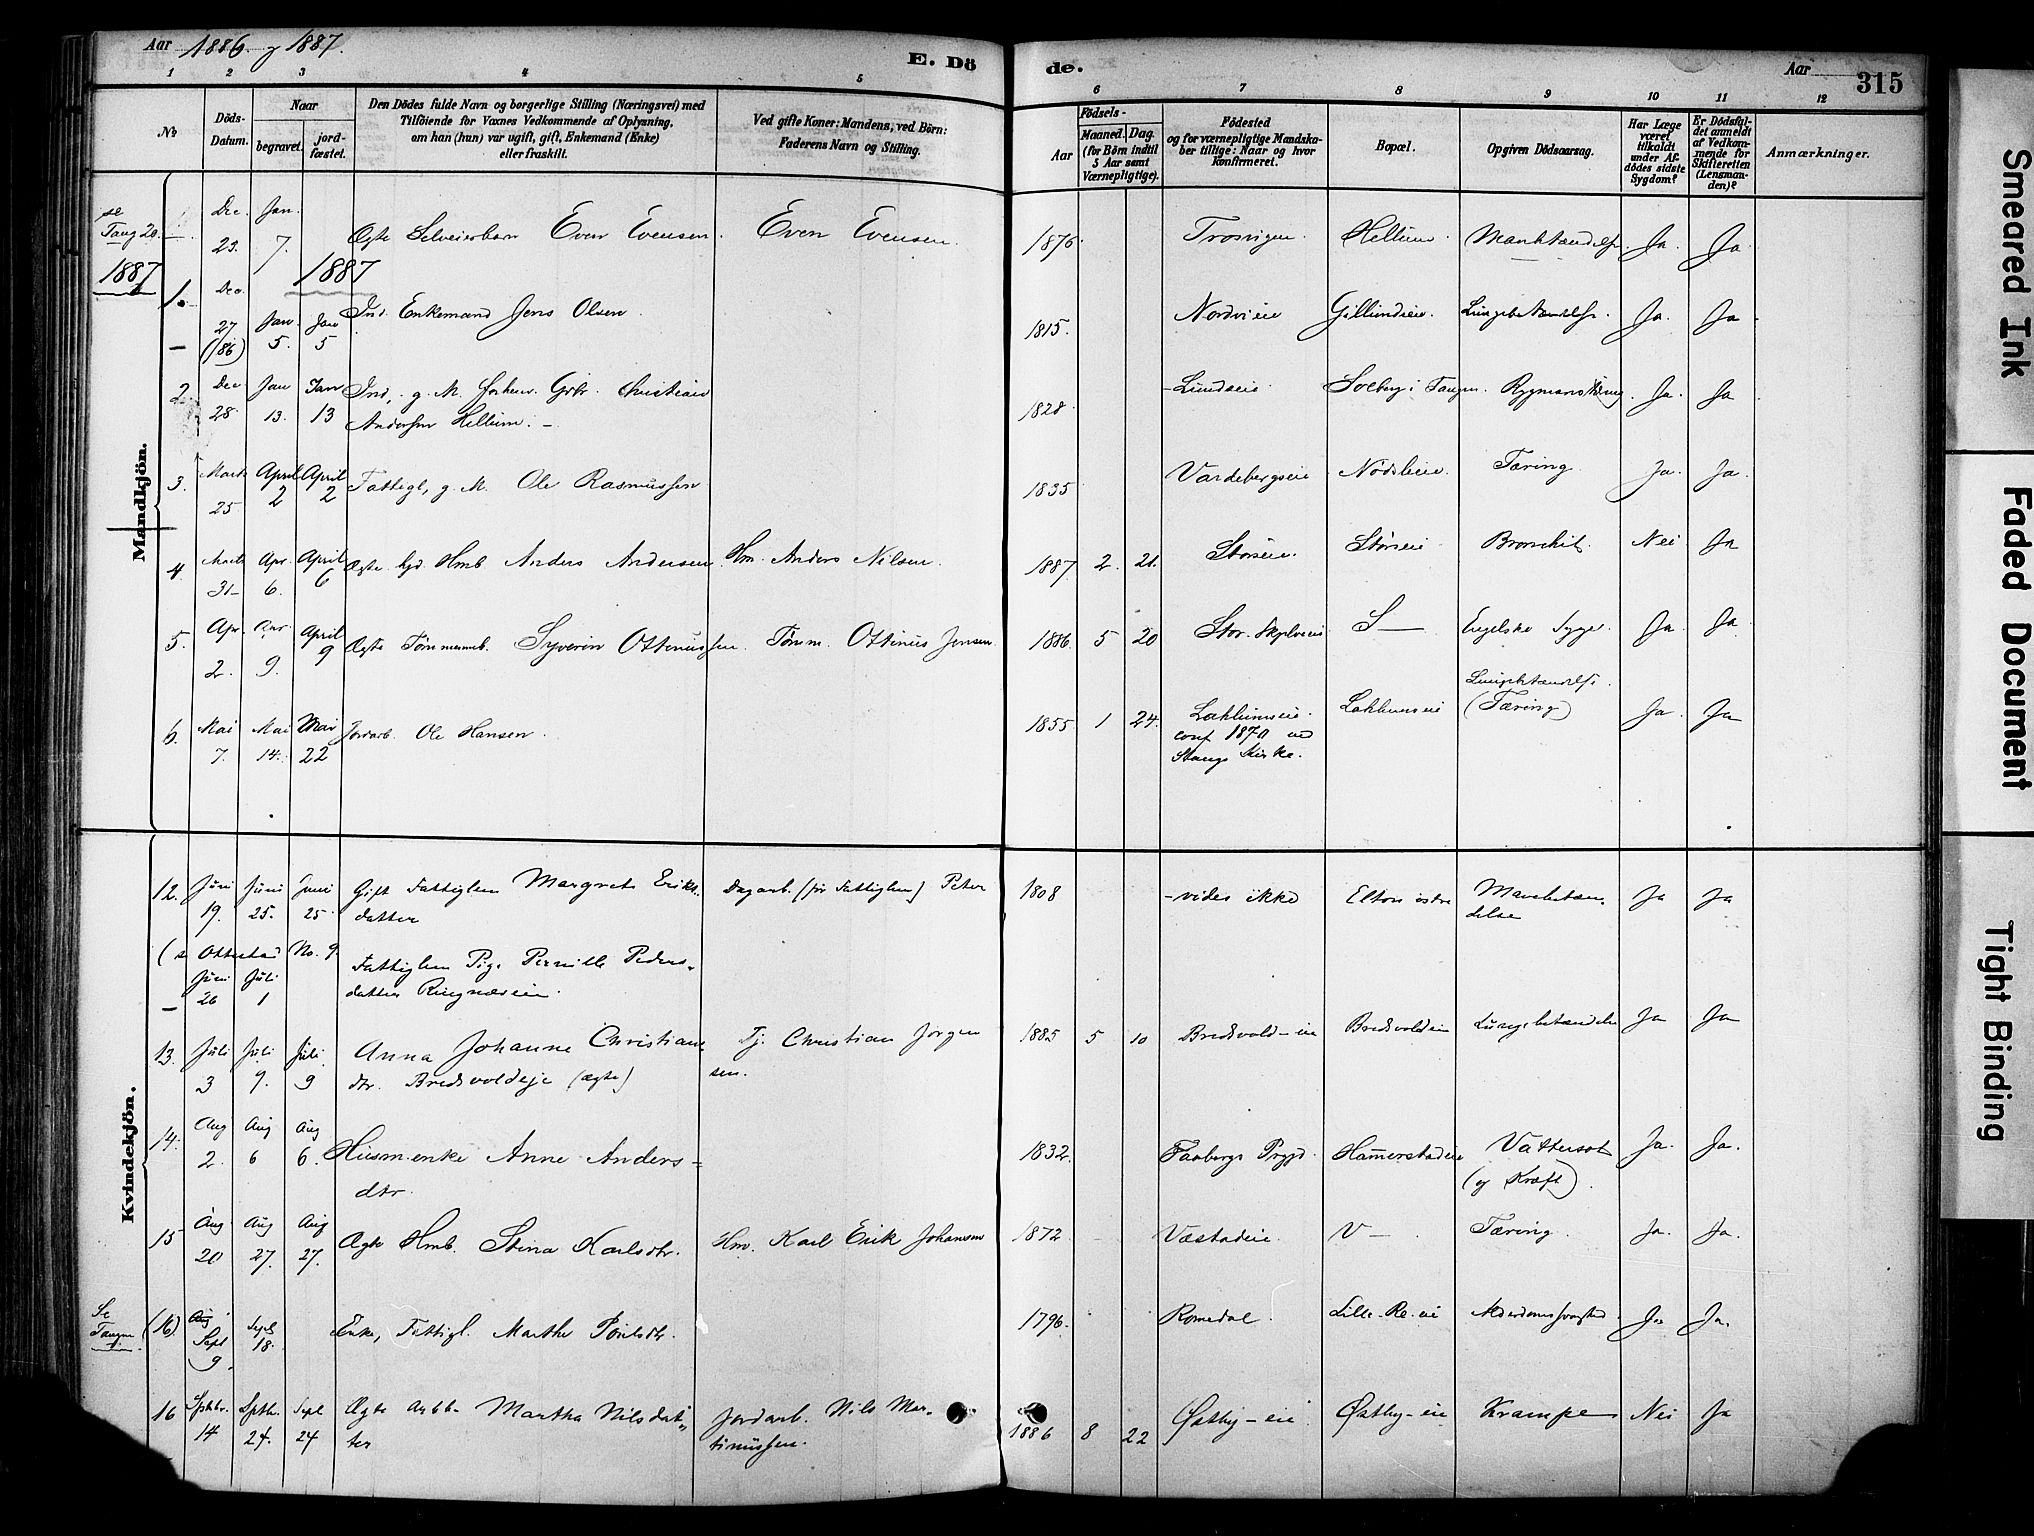 Aar 1886 og 1887.
E. Dö
de.
Aar
315
1 2 3 4 5
6 7 8 9 10 11 12
No
Döds-Datum.
Naar
begravet.
jord-fæstet.
Den Dödes fulde Navn og borgerlige Stilling (Næringsvei) med
Tilföiende for Voxnes Vedkommende af Oplysning,
om han (hun) var ugift, gift, Enkemand (Enke)
eller fraskilt.
Ved gifte Koner: Mandens, ved Börn:
Faderens Navn og Stilling.
Födsels-
Aar
Maaned. Dag.
(for Börn indtil
5 Aar samt
Værnepligtige).
Födested
og for værnepligtige Mandska-
ber tillige: Naar og hvor
konfirmeret.
Bopæl.
Opgiven Dödsaarsag.
Har Læge
været
tilkaldt
under Af-
dödes sidste
Sygdom?
Er Dödsfal-
det anmeldt
af Vedkom-
mende for
Skifteretten
(Lensman-
den)?
Anmærkninger.
Mandkjön.
se Tang 20. Dec. 23. Jan. 7. Ægte Selveierbarn Even Evensen Even Evensen. 1876. Trosvigen Hellum Ja. Ja
1887
1887
1. Dec. 27 (/86) Jan. 5. Jan 5 Ind. Enkemand Jens Olsen. 1815. Nordvieie Gillundeie. Lungebetændelse. Ja. Ja
2. Dec 28. Jan 13. Jan 13 Ind., g. M. forhenv. Gbr. Christian
Andersen Hellum. 1828. Lundseie Solberg i Tangen. Ja. Ja
3. Marts 25 April 2 April 2 Fattigl., g. M. Ole Rasmussen 1835 Vardebergseie Nödsleie. Tæring Ja. Ja.
4. Marts 31 Apr. 6. April 6 Ægte Hmb Anders Andersen Hm. Anders Nilsen. 1887 2. 21. Storseie. Störseie Bronchit. Nei Ja
5. Apr. 2. Apr. 9. April 9 Ægte Tömmermb. Syverin Ottinussen Tömm. Ottinus Jensen 1886. 5 20 S— Engelske Syge. Ja. Ja.
6. Mai 7. Mai 14. Mai 22 Jordarb. Ole Hansen. 1855 1 24. Laklumseie.
conf 1870 ved
Stange Kirke.
Laklumseie Lungebetændelse.
(Tæring) Ja. Ja
Kvindekjön.
12. Juni 19. Juni 25. Juni 25 Gift Fattiglem Margrete Eriks-
datter Dagarb. (för Fattiglem) Peter 1808 vides ikke Elton östre Mavebetæn-
delse Ja Ja
(se Ottestad No. 9.
Juni 26 Juli 1 Fattiglem Pige Pernille Peders-
datter Ringnæseie.
13. Juli 3 Juli 9. Juli 9 Anna Johanne Christians-
dtr. Bredsvoldeje (ægte) Tj. Christian Jörgen
sen. 1885 5 10 Bredsvold-eie Bredsvoldeie Lungebetændelse Ja Ja
14. Aug 2. Aug 6 Aug 6. Husm.enke Anne Anders-
dtr. 1832. Faabergs Prgjd. Hammerstadeie Vattersot
(og Kræft). Ja. Ja.
15 Aug 20 Aug 27. Aug 27. Ægte Hmb. Stina Karlsdtr. Hm. Karl Erik Johansen 1872 Væstadeie. V— Tæring. Ja. Ja.
Se Tangen (16) Aug Sept 9. Sept 18. Enke, Fattigl. Marthe Poulsdtr. 1796. Romedal. Lille-Re-eie Alderdomssvaghed. Ja Ja.
16 Sptbr. 14 Sptb. 24. Sept 24 Ægte Arbb. Martha Nilsdat-
ter Jordarb. Nils Mar-
tinussen. 1886 8 22 Østby-eie Østby-eie Krampe Nei Ja
Smeared Ink
Faded Document
Tight Binding